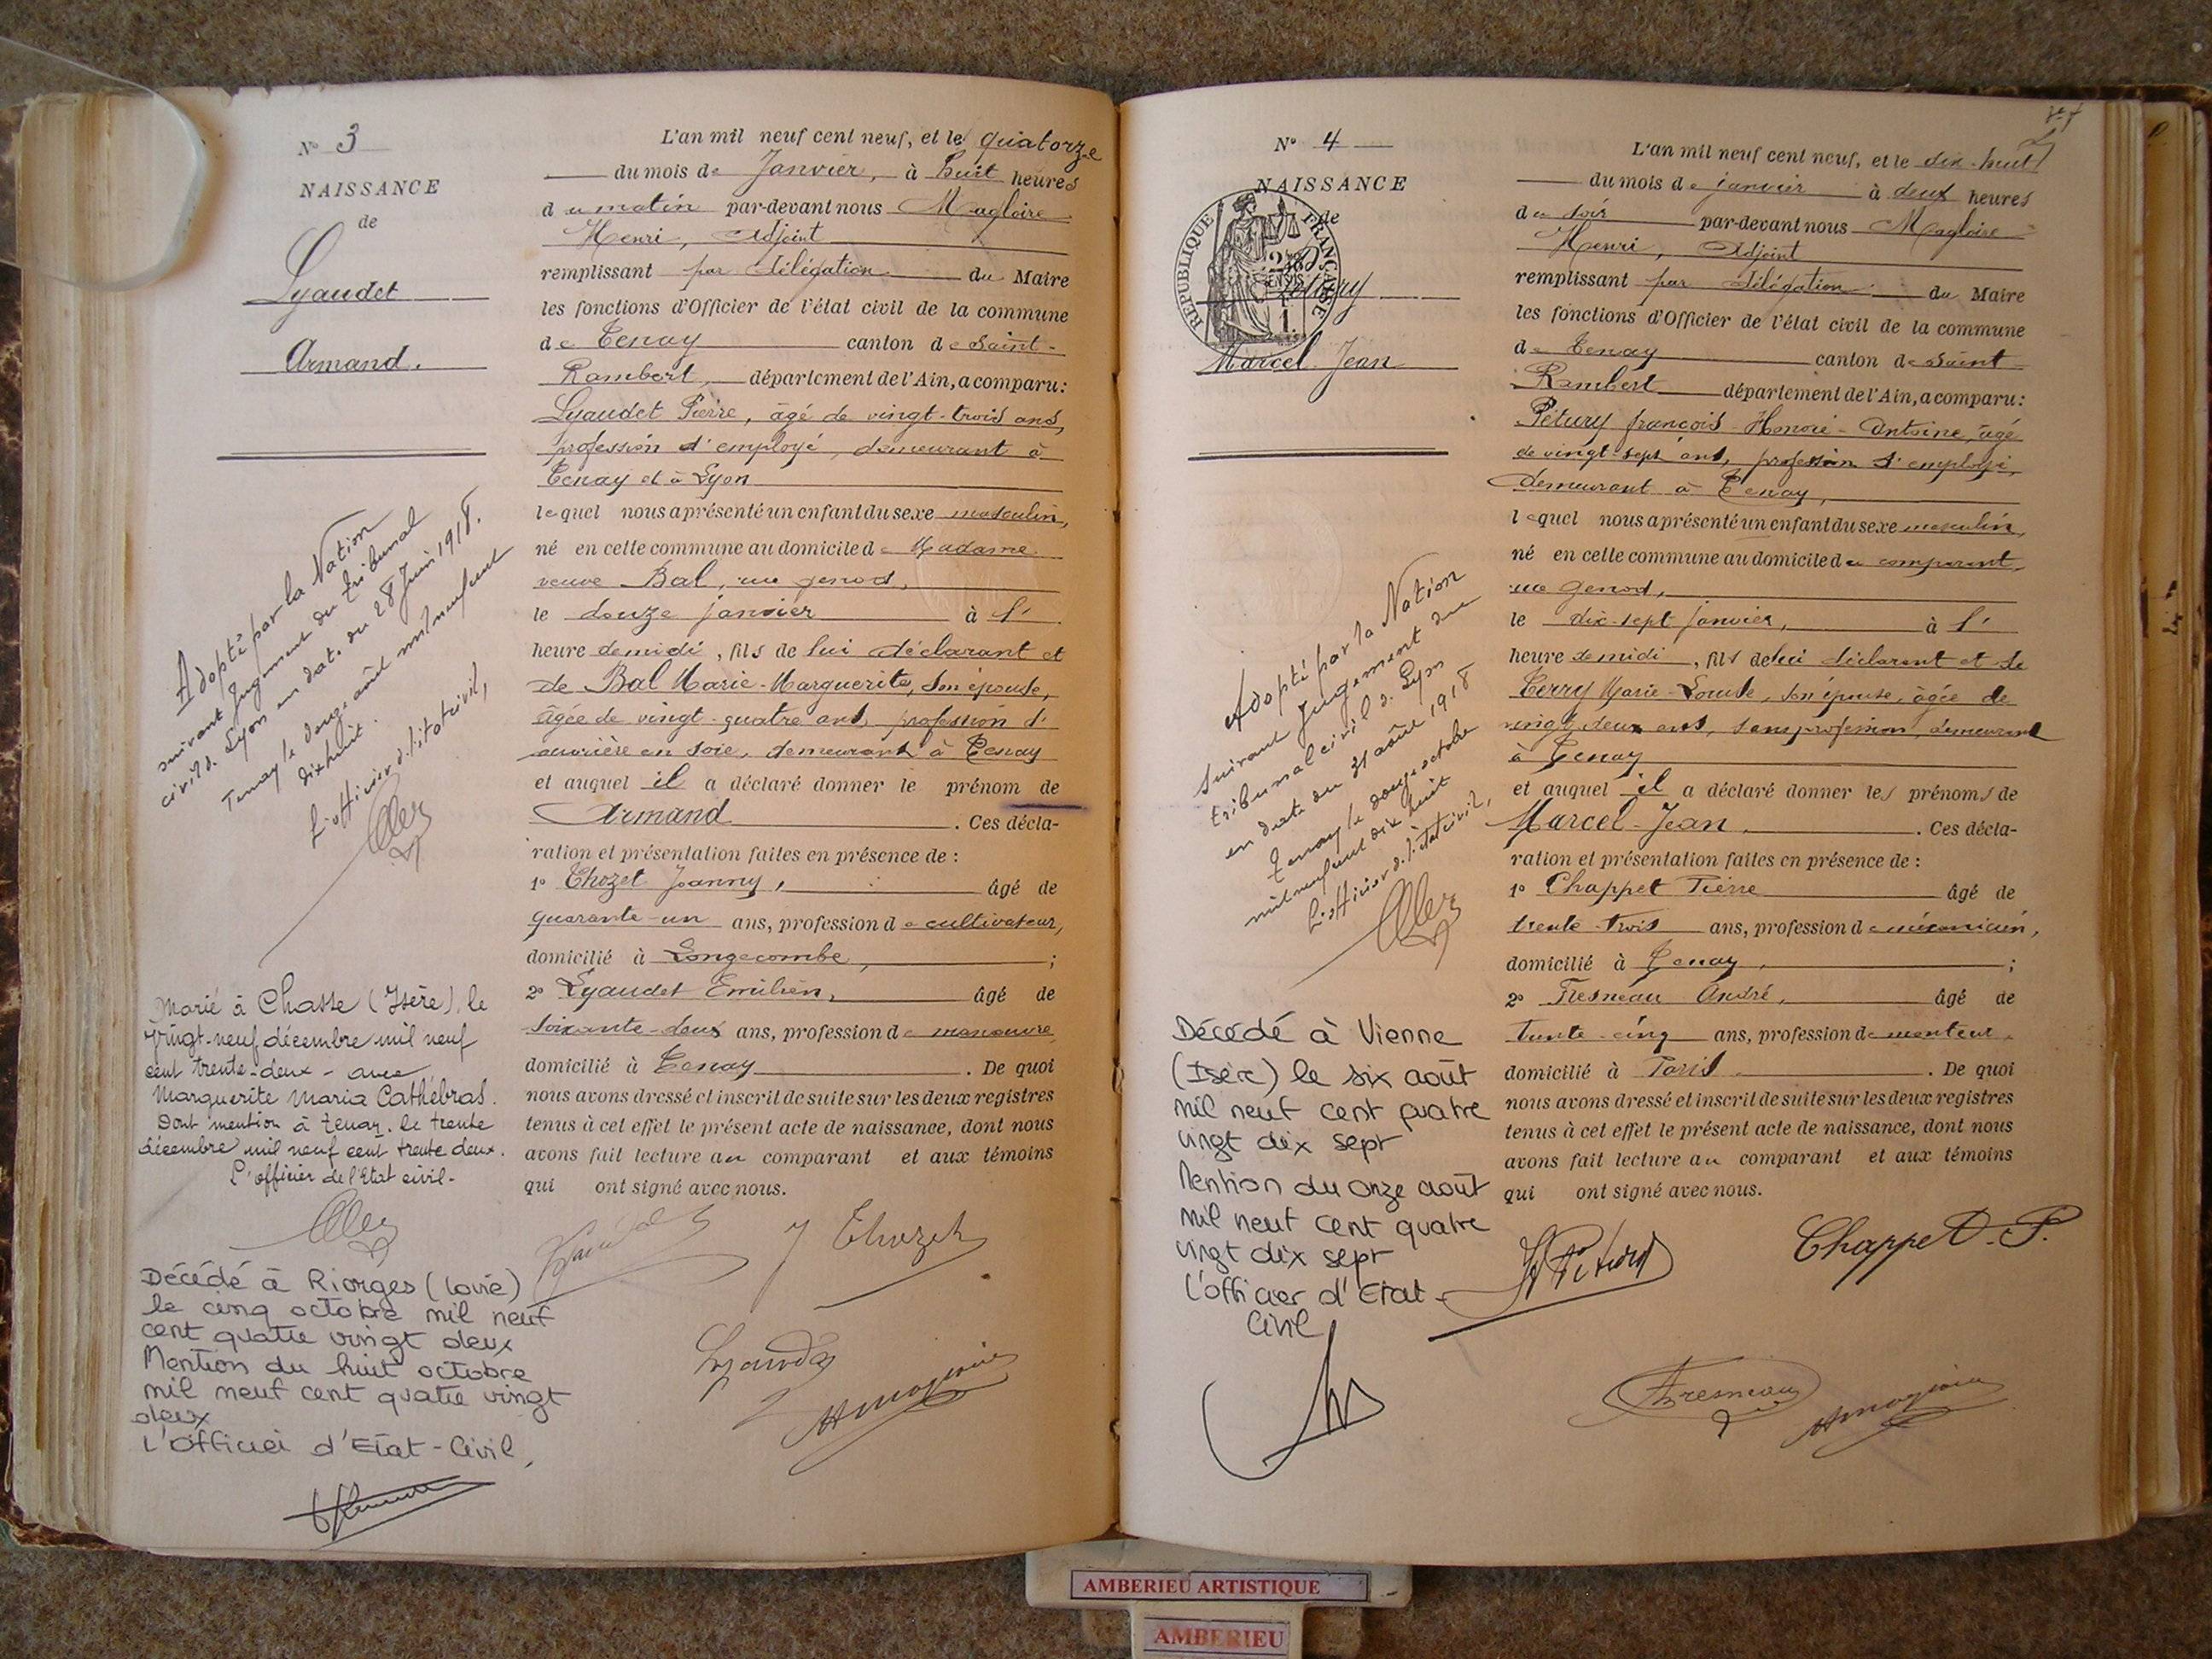 N° 3
NAISSANCE
de
Lyaudet
Armand.
Adopté par la Nation
suivant jugement du tribunal
civil de Lyon en date du 28 Juin 1918.
Tenay le douze août mil neuf cent
dix huit.
L'officier de l'état civil,
Marié à Chasse (Isère), le
vingt-neuf décembre mil neuf
cent trente-deux - avec
Marguerite Maria Cathébras.
Dont mention à Tenay. le trente
décembre mil neuf cent trente deux.
L'officier de l'Etat civil-
Décédé à Riorges (Loire)
le cinq octobre mil neuf
cent quatre vingt deux
Mention du huit octobre
mil neuf cent quatre vingt
deux
L'Officier d'Etat-Civil,
L'an mil neuf cent neuf, et le quatorze
du mois de Janvier, à huit heures
du matin par-devant nous Magloire
Henri, Adjoint
remplissant par délégation du Maire
les fonctions d'Officier de l'état civil de la commune
de Tenay canton de Saint-
Rambert, département de l'Ain, a comparu:
Lyaudet Pierre, âgé de vingt-trois ans,
profession d'employé, demeurant à
Tenay et à Lyon
lequel nous a présenté un enfant du sexe masculin,
né en cette commune au domicile de Madame
veuve Bal, rue genod,
le douze janvier à l'
heure de midi, fils de lui déclarant et
de Bal Marie-Marguerite, son épouse,
âgée de vingt-quatre ans, profession d'
ouvrière en soie, demeurant à Tenay
et auquel il a déclaré donner le prénom de
Armand. Ces décla-
ration et présentation faites en présence de :
1° Thozet Joanny, âgé de
quarante-un ans, profession de cultivateur,
domicilié à Longecombe, ;
2° Lyaudet Emilien, âgé de
soixante-deux ans, profession de manœuvre
domicilié à Tenay. De quoi
nous avons dressé et inscrit de suite sur les deux registres
tenus à cet effet le présent acte de naissance, dont nous
avons fait lecture au comparant et aux témoins
qui ont signé avec nous.
J Thozet
N° 4
NAISSANCE
de
REPUBLIQUE FRANÇAISE
Pétury
Marcel Jean
Adopté par la Nation
suivant Jugement du
tribunal civil de Lyon
en date du 31 août 1918
Tenay le douze octobre
mil neuf cent dix huit
L'officier de l'état civil,
Décédé à Vienne
(Isère) le six août
mil neuf cent quatre
vingt dix sept
Mention du onze août
mil neuf cent quatre
vingt dix sept
L'officier d'Etat-
Civil
L'an mil neuf cent neuf, et le dix-huit
du mois de janvier à deux heures
du soir par-devant nous Magloire
Henri, Adjoint
remplissant par délégation du Maire
les fonctions d'Officier de l'état civil de la commune
de Tenay canton de Saint
Rambert département de l'Ain, a comparu:
Pétury françois-Honoré-Antoine, âgé
de vingt-sept ans, profession d'employé,
demeurant à Tenay,
lequel nous a présenté un enfant du sexe masculin,
né en cette commune au domicile du comparant,
rue genod,
le dix-sept janvier, à l'
heure de midi, fils de lui déclarant et de
Terry Marie-Louise, son épouse, âgée de
vingt-deux ans, sans profession, demeurant
à Tenay
et auquel il a déclaré donner les prénoms de
Marcel-Jean. Ces décla-
ration et présentation faites en présence de :
1° Chappet Pierre âgé de
trente-trois ans, profession de mécanicien,
domicilié à Tenay, ;
2° Fresneau André, âgé de
trente-cinq ans, profession de monteur,
domicilié à Paris. De quoi
nous avons dressé et inscrit de suite sur les deux registres
tenus à cet effet le présent acte de naissance, dont nous
avons fait lecture au comparant et aux témoins
qui ont signé avec nous.
Chappet. P.
Fresneau
AMBERIEU ARTISTIQUE
AMBERIEU